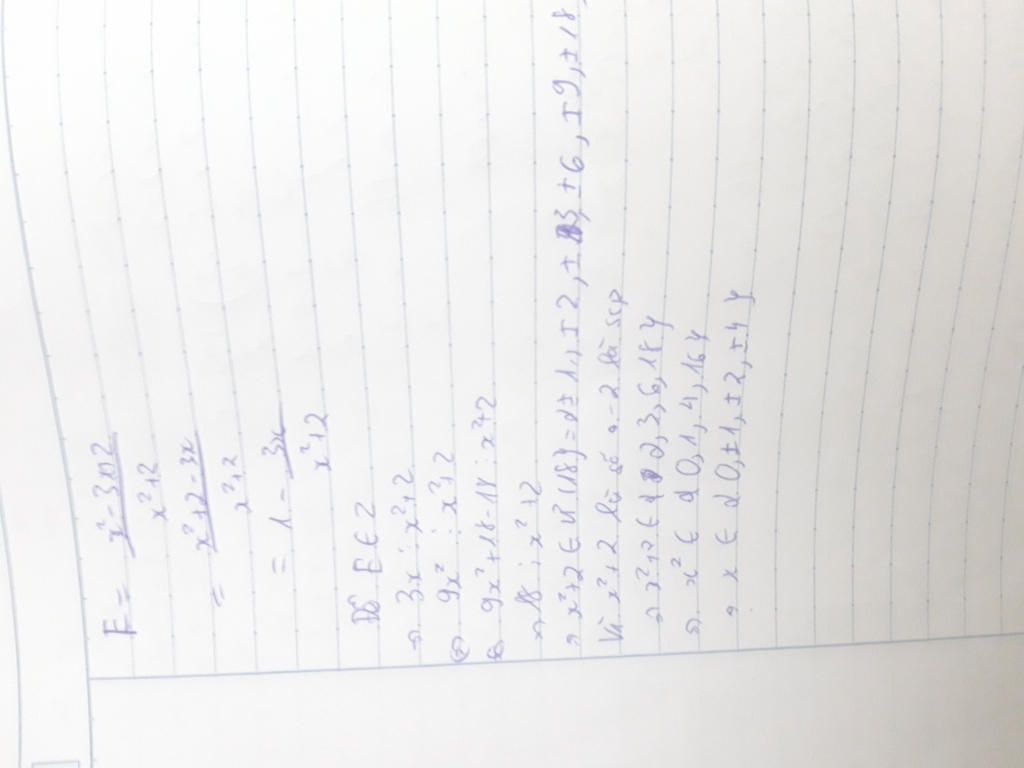 F = x²-3x+2 / x²+2
= x²+2-3x / x²+2
= 1 - 3x / x²+2
Để F ∈ Z
=> 3x ⋮ x²+2
<=> 9x² ⋮ x²+2
<=> 9x²+18-18 ⋮ x²+2
=> 18 ⋮ x²+2
=> x²+2 ∈ Ư(18) = {±1, ±2, ±3, ±6, ±9, ±18
Vì x²+2 là số a-2 là scp
=> x²+2 ∈ {2, 3, 6, 18}
=> x² ∈ {0, 1, 4, 16}
=> x ∈ {0, ±1, ±2, ±4}